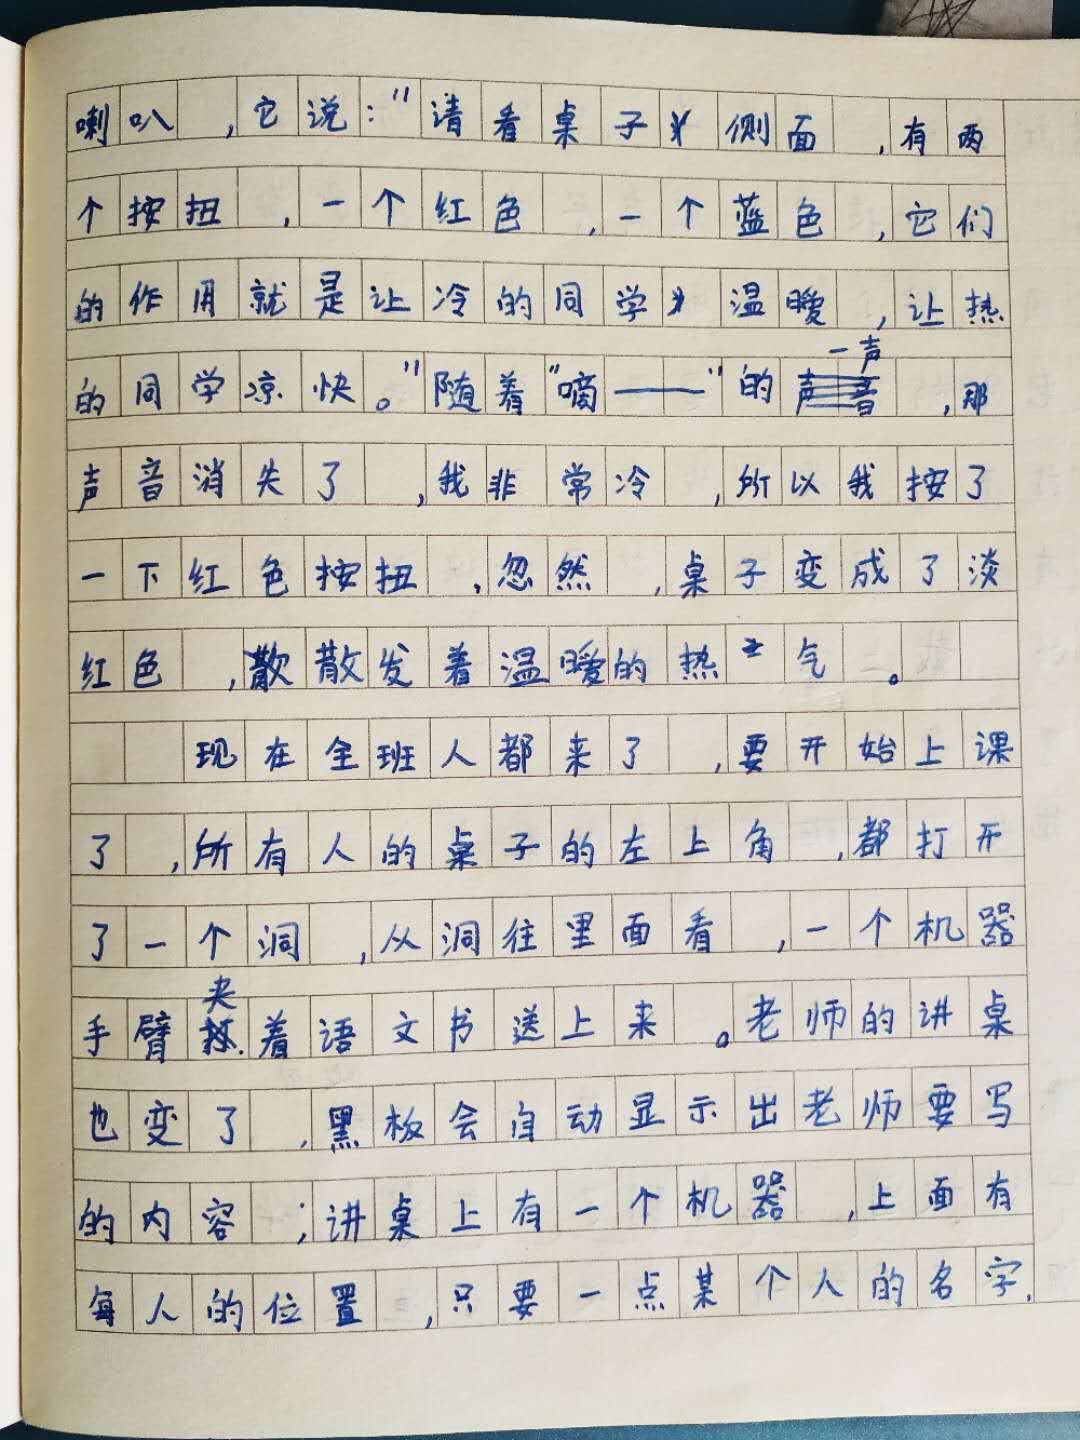 喇叭，它说：“请看桌子侧面，有两
个按扭，一个红色，一个蓝色，它们
的作用就是让冷的同学温暖，让热
的同学凉快。”随着“嘀——”的一声，那
声音消失了，我非常冷，所以我按了
一下红色按扭，忽然，桌子变成了淡
红色，散散发着温暖的热气。
现在全班人都来了，要开始上课
了，所有人的桌子的左上角，都打开
了一个洞，从洞往里面看，一个机器
手臂夹着语文书送上来。老师的讲桌
也变了，黑板会自动显示出老师要写
的内容；讲桌上有一个机器，上面有
每人的位置，只要一点某个人的名字，